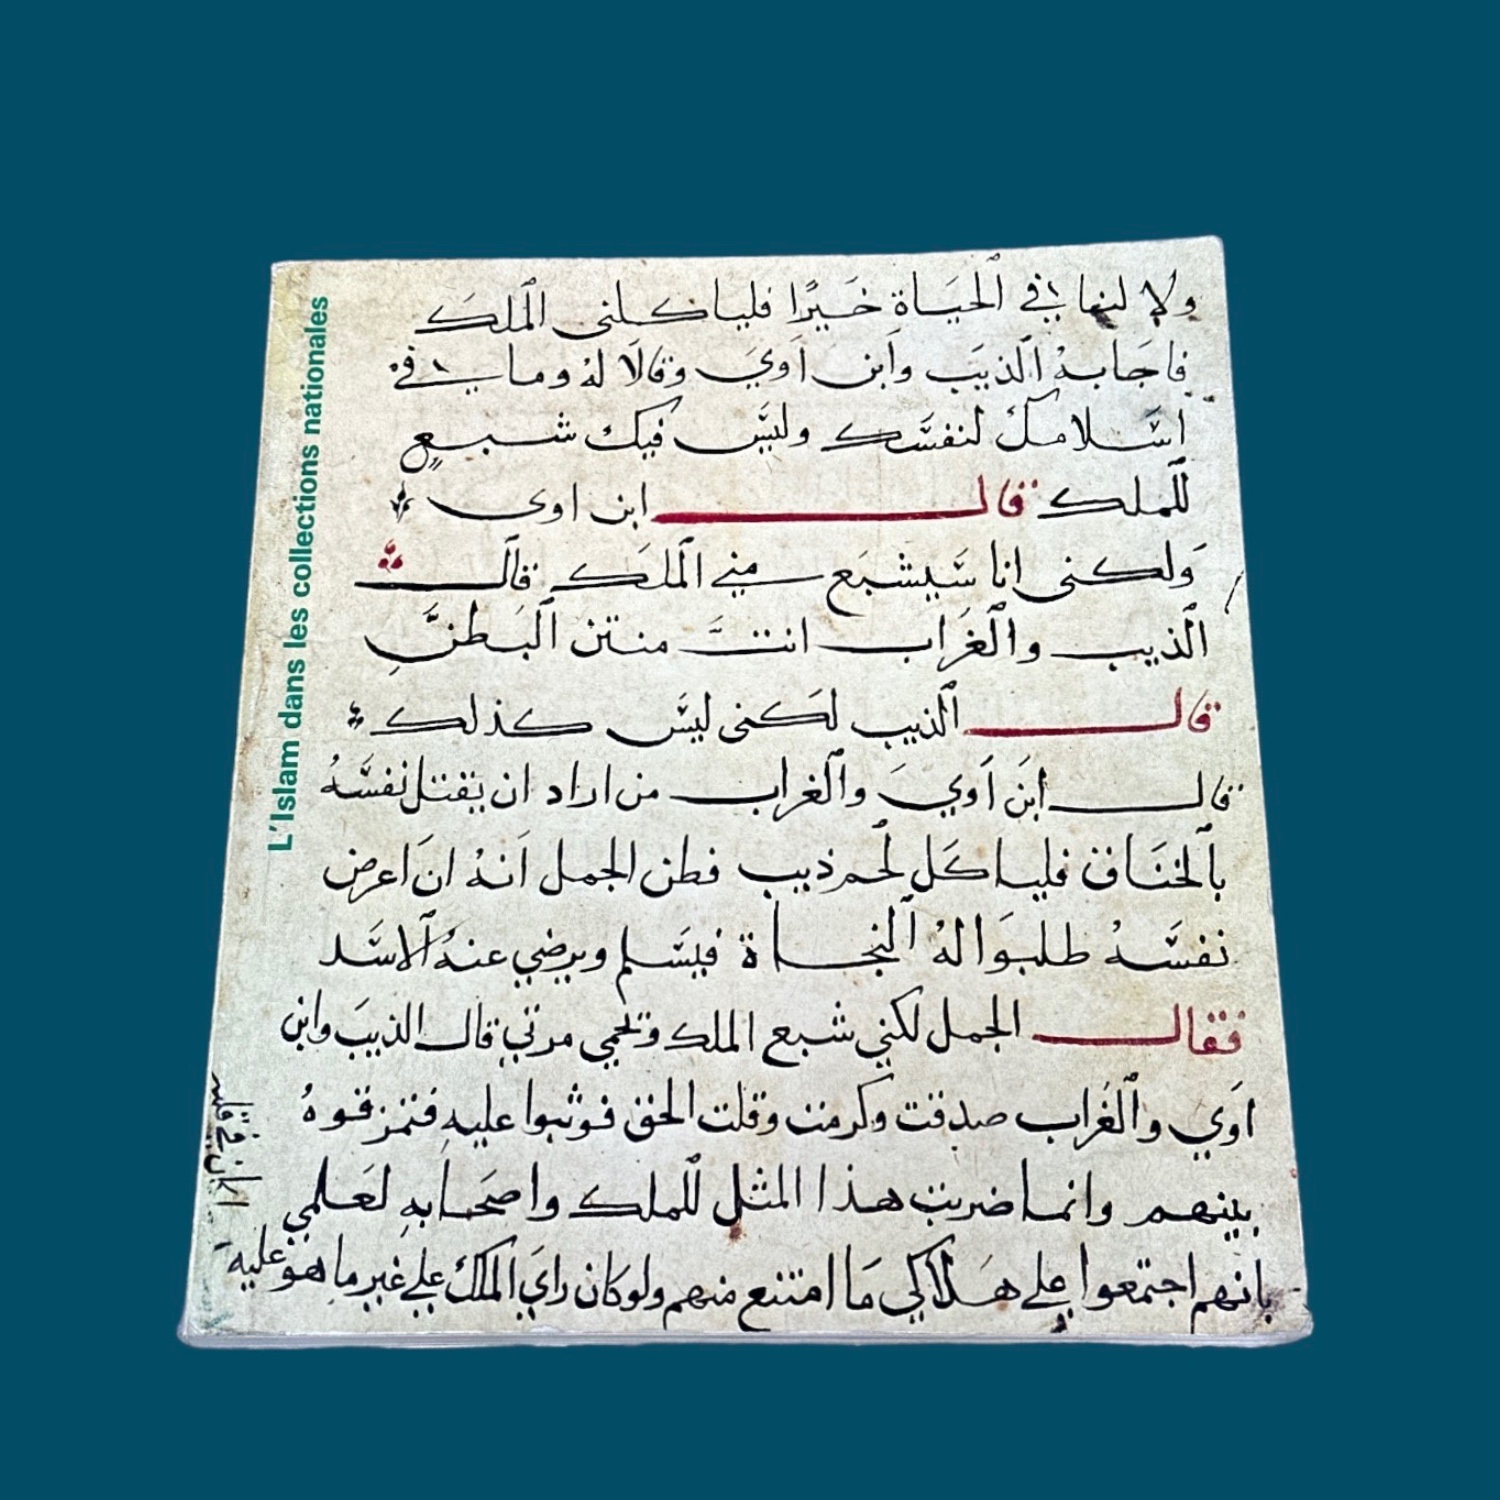 L'Islam dans les collections nationales
ولا لنفسي في الحَيَاة خَيرًا فلياكلني الملكَ
فاجَابهُ الذيبَ وابن اَويَ وقالَا لهُ وما في
اسَّلامكَ لنفسَّك وليسَّ فيك شبعٍ
للملك قال ابن اوى
وَلكنى انا سَّيشبَع مني الملَك قالَ
الذيب والغَراب انتَ منتن البَطنَّ
قال الذيب لكَنى ليسَّ كذلك
قال ابنَ اَويَ والغراب من اراد ان يقتل نفسَّهُ
بالخنَاق فلياكَل لحَم ذيب فطن الجمل اَنهُ انَ اعرض
نفسَّهُ طلبَوا لهُ النجاة فيسَّلم ويرضي عنهُ الاسَّد
فقال الجمل لكني شبع الملك ولحمي مرتي قال الذيبَ وابن
اَوي والغَراب صدقت وكرمت وقلت الحق فوثبوا عليهِ فتمزقوهُ
بينهم وانما ضربت هذا المثل للملك واصحَابهِ لعَلمي
بانهم اجتمعوا على هَلاكي مَا امتنع منهم ولو كَان رايَ الملك علي غير ما هو عليه